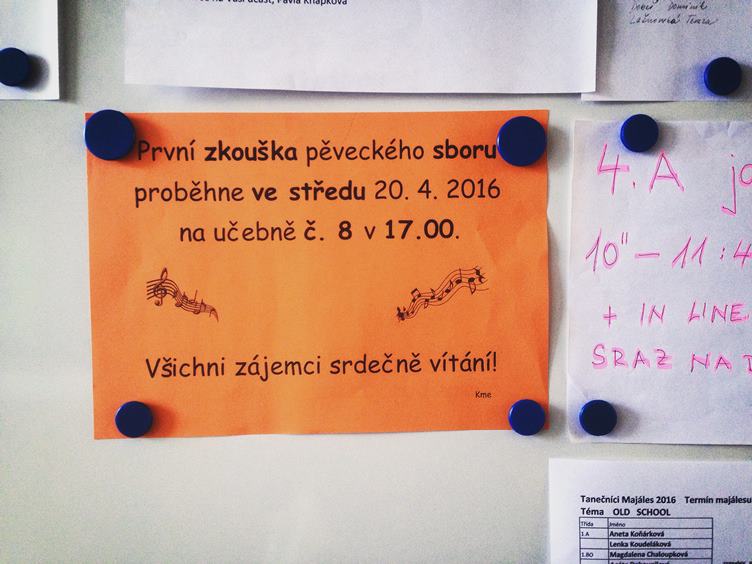 na Vaši účast, Pavla Knapková
První zkouška pěveckého sboru
proběhne ve středu 20. 4. 2016
na učebně č. 8 v 17.00.
Všichni zájemci srdečně vítáni!
Kme
4. A
10" – 11 : 4
+ IN LINE
SRAZ NA
Tanečníci Majáles 2016 Termín majálesu
Téma OLD SCHOOL
Třída Jméno
1.A Aneta Koňárková
Lenka Koudeláková
1.BO Magdalena Chaloupková